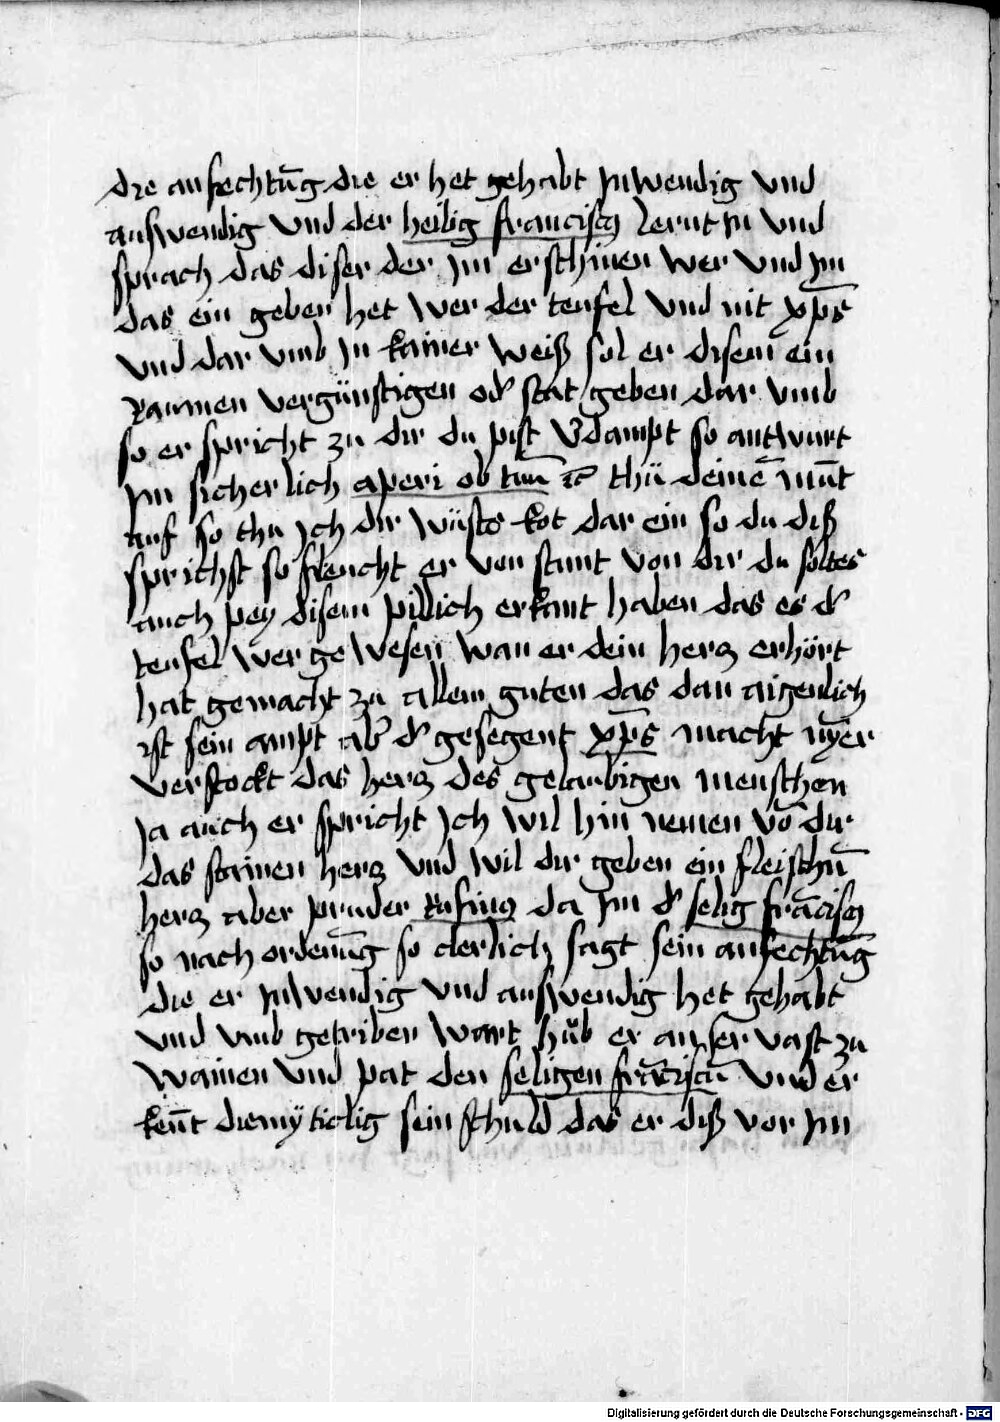 die anfechtūg die er het gehabt jnwendig vnd
auswendig vnd der heilig franciscꝰ lernt jn vnd
sprach das diser der jm erschinen wer vnd jm
das ein geben het wer der teufel vnd nit xp̄s
vnd dar vmb jn kainer weiß sol er disem ein
raumen vergünstigen od̛ stat geben dar vmb
so er spricht zu dir du pist v̛dampt so antwurt
jm sicherlich aperi os tuū ⁊c thü deinē mūt
auf so thu jch dir wüsts kot dar ein so du diß
sprichst so fleucht er von stunt von dir du soltes
auch pey disem pillich erkant haben das es d̛
teufel wer gewesen wan er dein hercz erhört
hat gemacht zu allem guten das dan aigenlich
ist sein ampt ab̛ d̛ gesegent xp̄s macht nȳer
verstockt das hercz des gelaubigen menschen
ja auch er spricht jch wil hin nemen vō dir
das stainen hercz vnd wil dir geben ein fleischn̄
hercz aber pruder rufinꝰ da jm d̛ selig frāciscꝰ
so nach ordenūg so clerlich sagt sein anfechtūg
die er jnwendig vnd auswendig het gehabt
vnd vmb getriben wart hůb er an ser vast zu
wainen vnd pat den seligen frāciscū vnd er
kēnt diemüticlig sein schuld das er diß vor jm